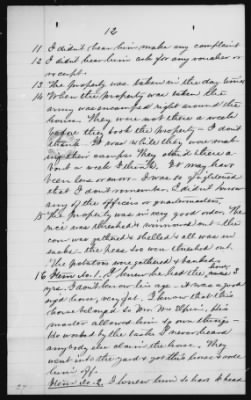 12
11 I didn't hear him make any complaint
12 I didn't hear him ask for any voucher or
receipt.
13 The property was taken in the day time
14 When the property was taken the
army was encamped right around the
house. They were not there a week
before they took the property - I dont
think. It was while they were mak-
ing their camps. They staid there a
bout a week I think. It may have
been less or more. I was so frightened
that I dont remember. I didn't know
any of the officers or quartermasters.
15 The property was in very good order. The
rice was threshed & winnowed out - the
corn was gathered & shelled & all was in
sacks. the peas too were thrashed out.
The potatoes were gathered & banked.
16 Item No. 1. I know he had the horse 3
yrs. I don't know his age - It was a good
sized horse, very fat. I know that this
horse belonged to Mr. Wm. His
master allowed him to own things.
He worked by the task. I never heard
anybody else claim the horse. They
went into the yard & got this horse & rode
him off.
Item No. 2. I knew him to have 4 head